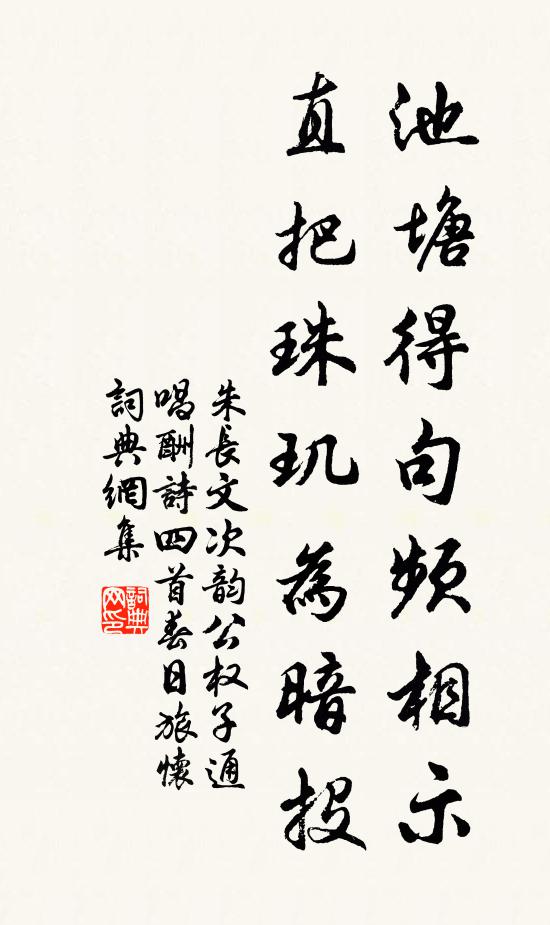 池塘得句頻相示
直把珠玑為暗投
朱長文次韵公权子通
唱酬詩四首春日旅懷
詞典網集
詞典
网印